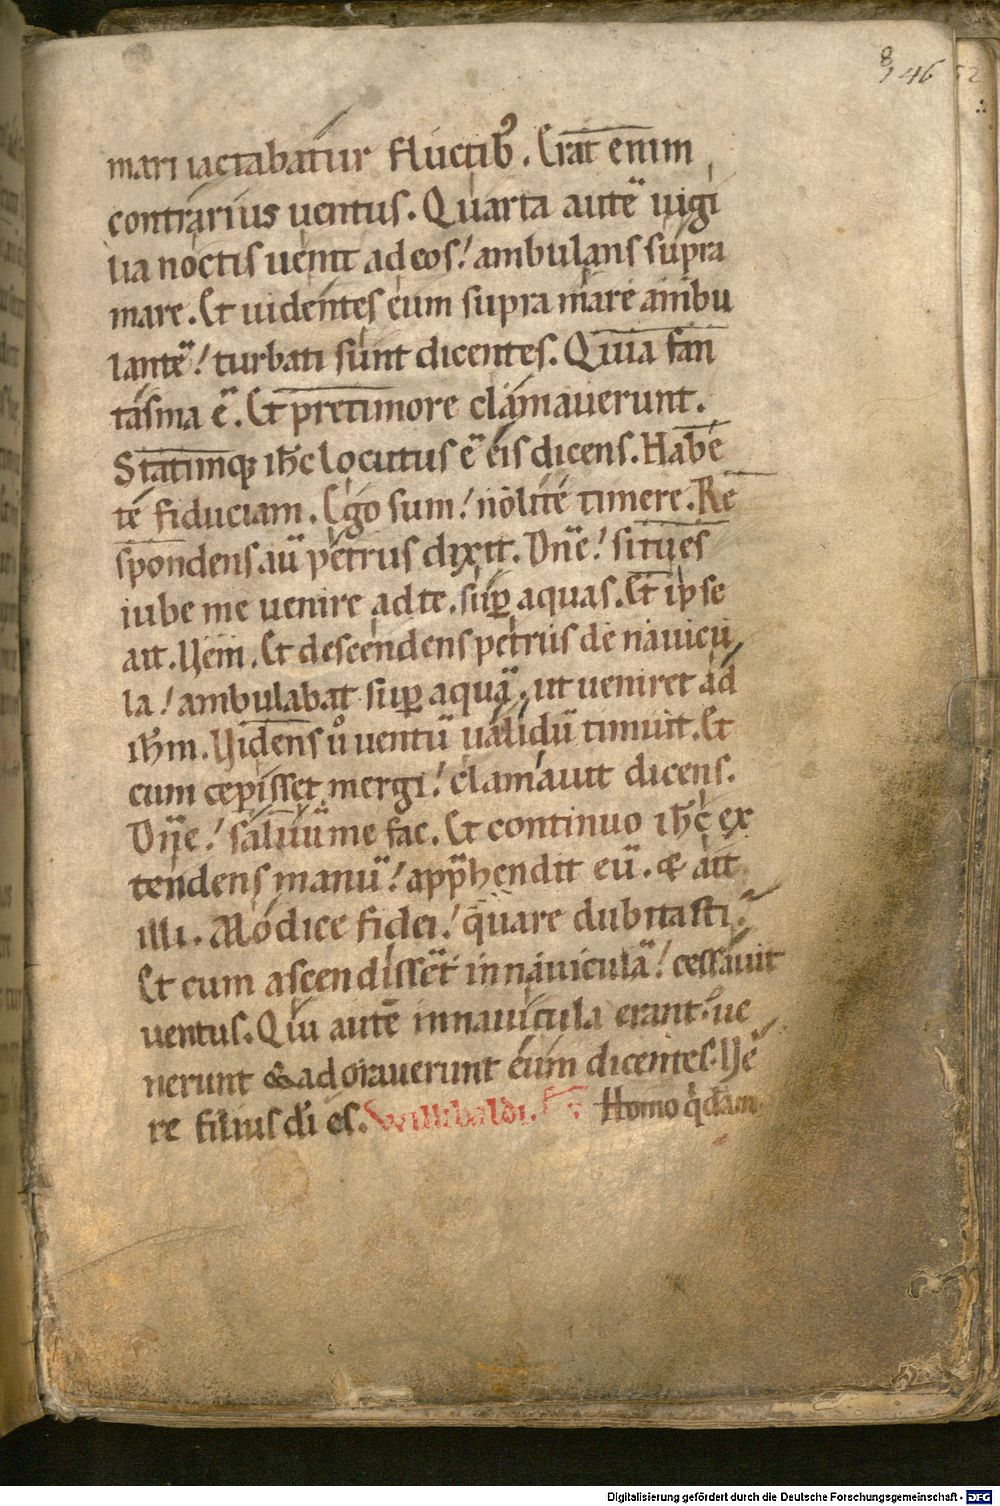 8
46 52
mari iactabatur fluctib᷒. Erat enim
contrarius uentus. Quarta autē uigi
lia noctis uenit ad eos! ambulans supra
mare. Et uidentes eum supra mare ambu
lantē! turbati sunt dicentes. Quia fan
tasma ē. Et pretimore clamauerunt.
Statimq; ihc̄ locutus ē eis dicens. Habe
te fiduciam. Ego sum! nolite timere. Re
spondens aū petrus dixit. Dn̄e! si tu es
iube me uenire adte. sup̄ aquas. Et ipse
ait. Ueni. Et descendens petrus de nauicu
la! ambulabat sup̄ aquā. ut ueniret ad
ihm̄. Uidens ů uentū ualidū timuit. Et
cum cepisset mergi! clamauit dicens.
Dn̄e! saluū me fac. Et continuo ihc̄ ex
tendens manū! app̄hendit eū. & ait
illi. Modice fidei! quare dubitasti?
Et cum ascendisset in nauiculā! cessauit
uentus. Qui autē innauicula erant! ue
nerunt & adorauerunt eum dicentes. Ue
re filius di̅ es. Willibaldi. Homo qdam
Digitalisierung gefördert durch die Deutsche Forschungsgemeinschaft - DFG